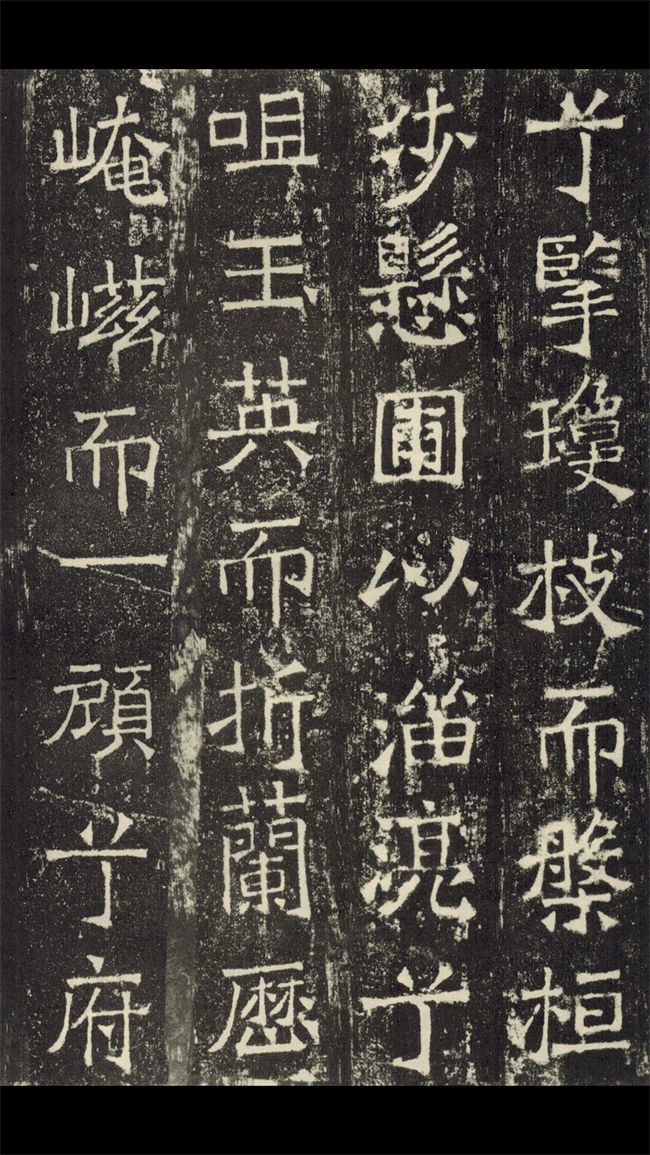 兮掔瓊枝而槃桓
步懸圃以溜湸兮
咀玉英而折蘭歷
崦嵫而一顧兮府